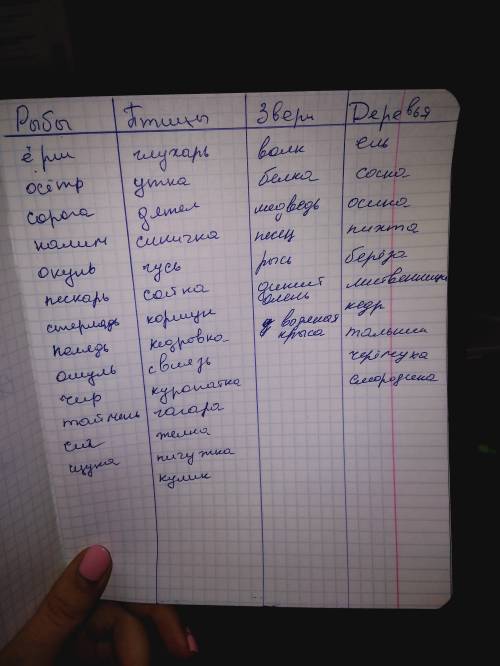 Рыбы Птицы Звери Деревья
ёрш глухарь волк ель
осётр утка белка сосна
сорога дятел медведь осина
налим синичка песец пихта
окунь гусь рысь берёза
пескарь сойка дикий олень лиственница
стерлядь коршун водяная крыса кедр
пелядь кедровка тальник
омуль свиязь черёмуха
чир куропатка смородина
таймень гагара
сиг желна
щука пигужка
кулик